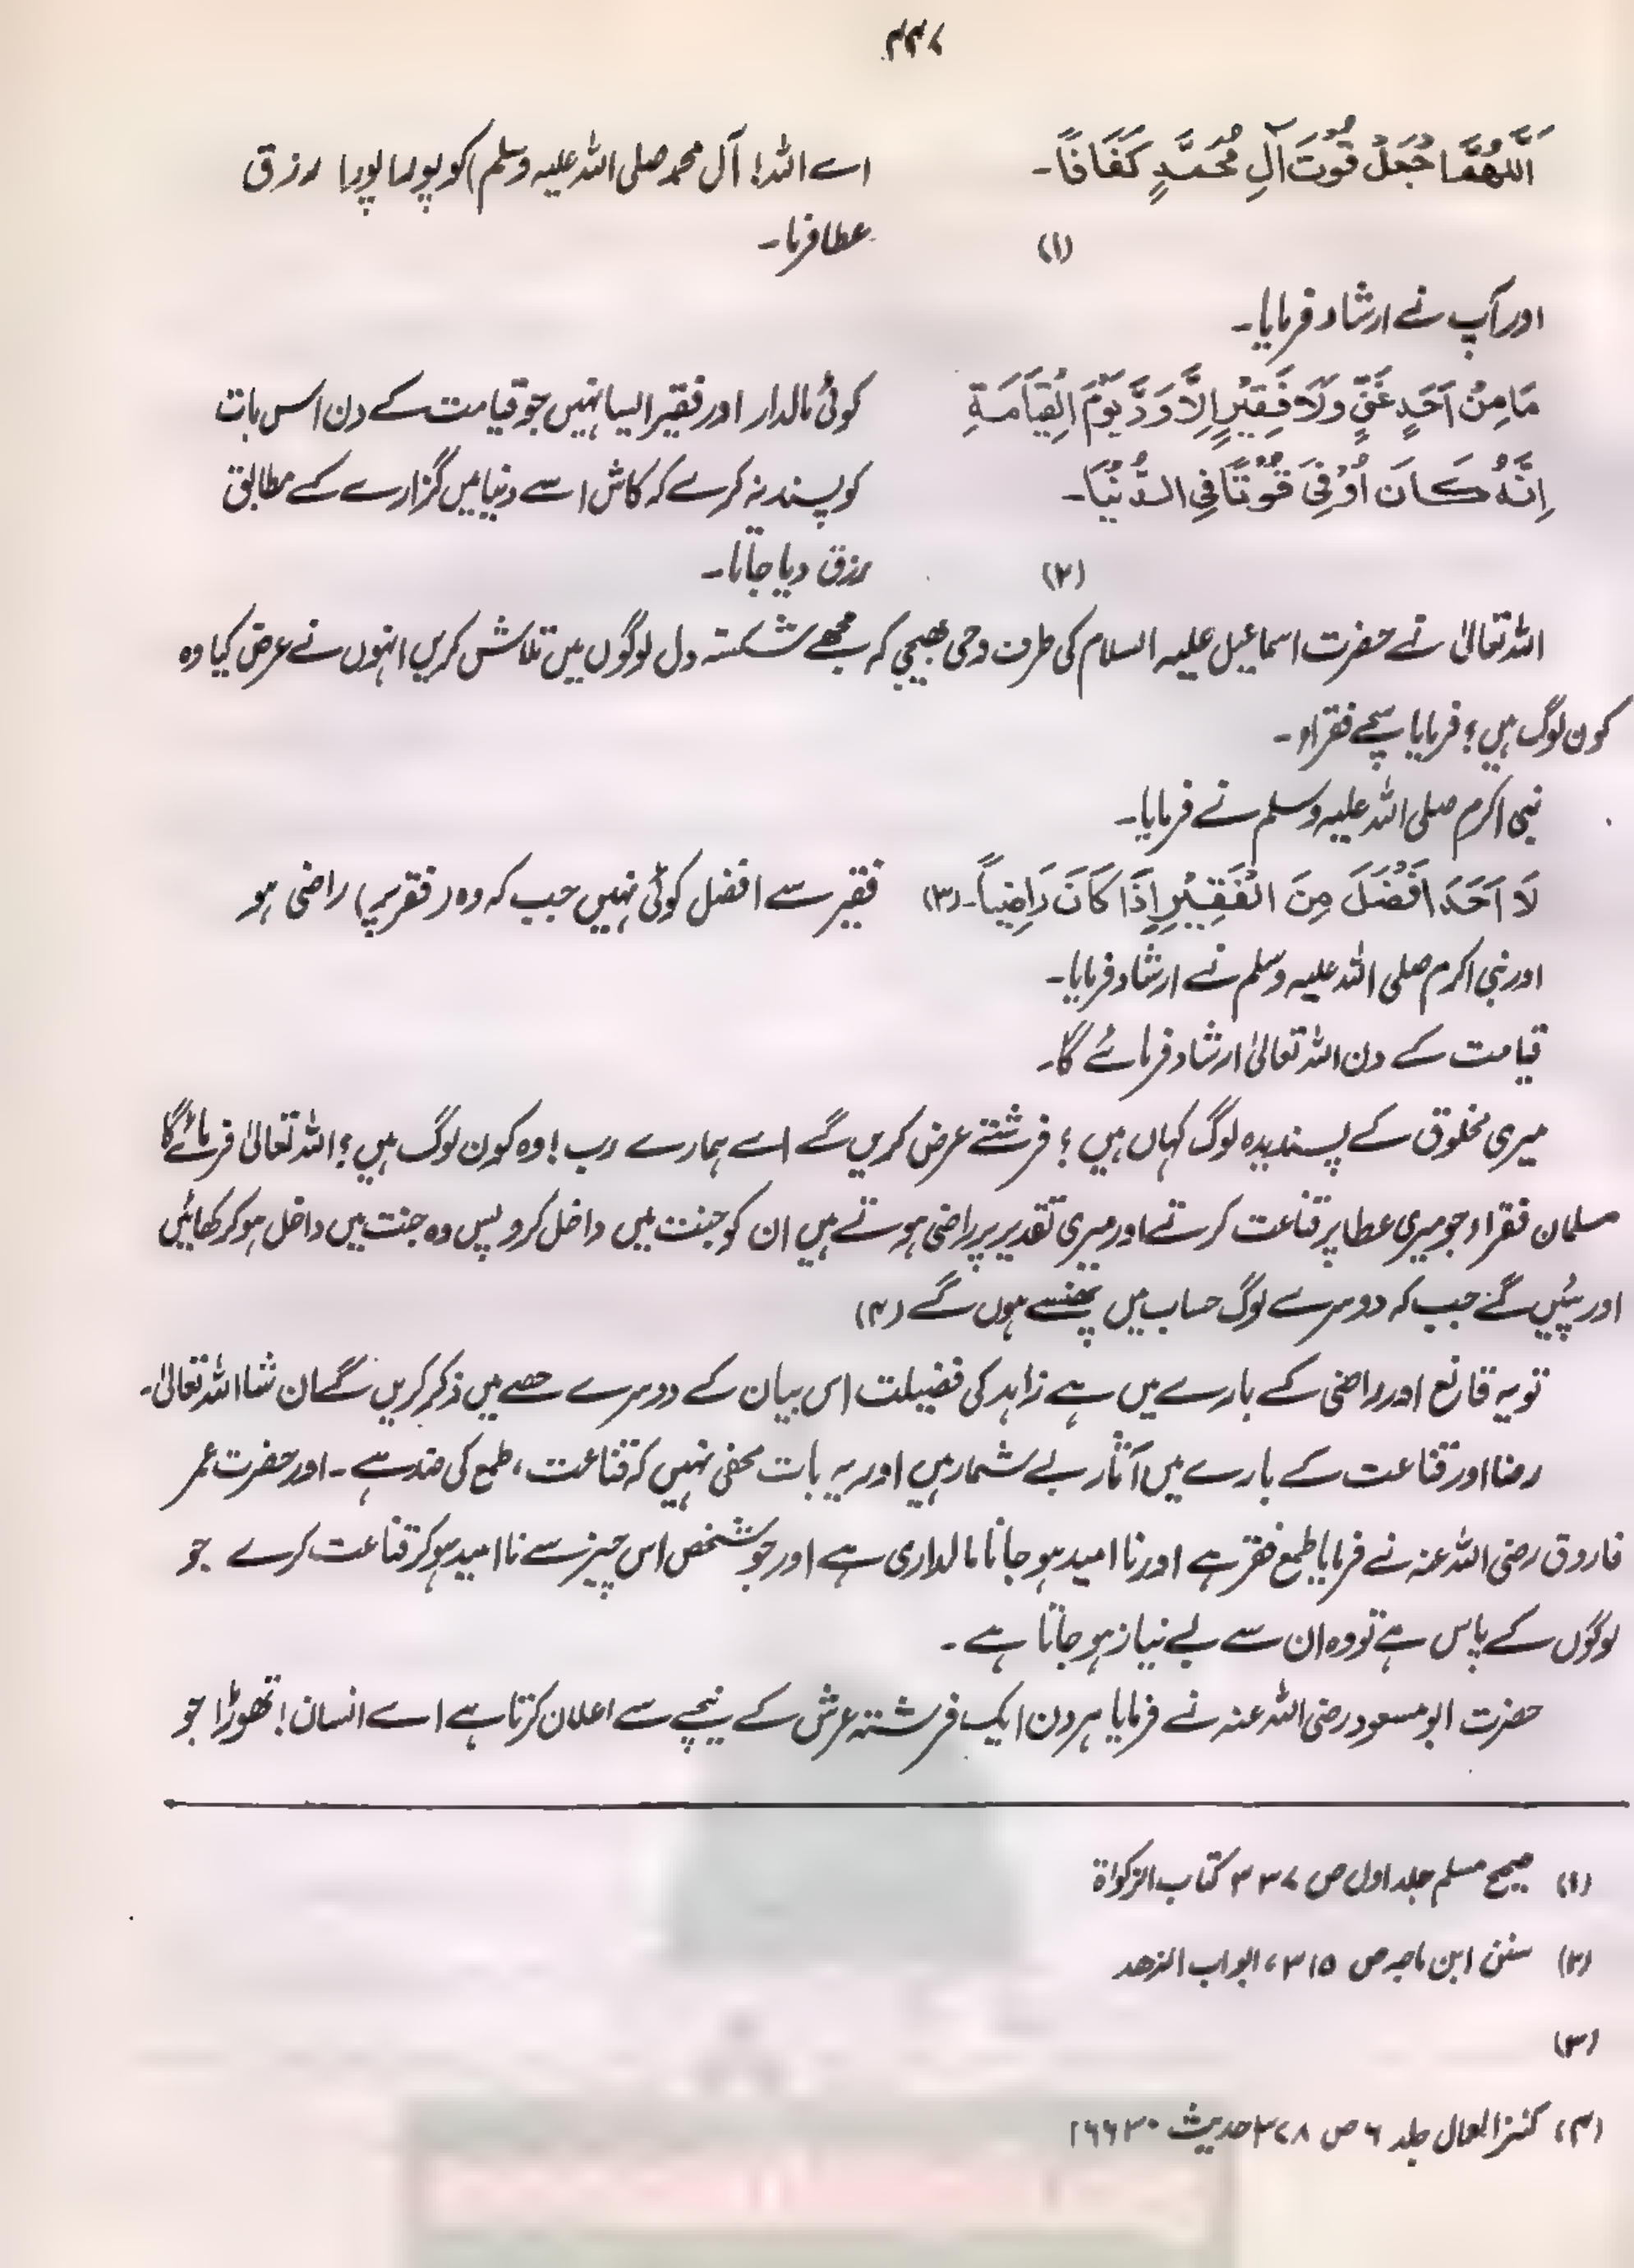 ۴۳۷
اَللّٰهُمَّ اجْعَلْ قُوْتَ آلِ مُحَمَّدٍ كَفَافًا۔ اے اللہ! آل محمد صلی اللہ علیہ وسلم) کو پورا پورا رزق
(۱) عطا فرما۔
اور آپ نے ارشاد فرمایا۔
مَا مِنْ اَحَدٍ غَنِّيٍ وَلَا فَقِيْرٍ اِلَّا وَدَّ يَوْمَ الْقِيَامَةِ کوئی مالدار اور فقیر ایسا نہیں جو قیامت کے دن اس بات
اِنَّهُ كَانَ اُوْتِيَ قُوْتًا فِي الدُّنْيَا۔ کو پسند نہ کرے کہ کاش اسے دنیا میں گزارے کے مطابق
(۲) رزق دیا جاتا۔
اللہ تعالیٰ نے حضرت اسماعیل علیہ السلام کی طرف وحی بھیجی کہ مجھے شکستہ دل لوگوں میں تلاش کریں انہوں نے عرض کیا وہ
کون لوگ ہیں؟ فرمایا سچے فقراء۔
نبی اکرم صلی اللہ علیہ وسلم نے فرمایا۔
لَا اَحَدَ اَفْضَلَ مِنَ الْفَقِيْرِ اِذَا كَانَ رَاضِيًا۔ (۳) فقیر سے افضل کوئی نہیں جب کہ وہ (فقر پر) راضی ہو
اور نبی اکرم صلی اللہ علیہ وسلم نے ارشاد فرمایا۔
قیامت کے دن اللہ تعالیٰ ارشاد فرمائے گا۔
میری مخلوق کے پسندیدہ لوگ کہاں ہیں؟ فرشتے عرض کریں گے اے ہمارے رب! وہ کون لوگ ہیں؟ اللہ تعالیٰ فرمائے گا
مسلمان فقراء جو میری عطا پر قناعت کرتے اور میری تقدیر پر راضی ہوتے ہیں ان کو جنت میں داخل کرو پس وہ جنت میں داخل ہو کر کھائیں
اور پئیں گے جب کہ دوسرے لوگ حساب میں پھنسے ہوں گے (۴)
تو یہ قانع اور راضی کے بارے میں ہے زاہد کی فضیلت اس بیان کے دوسرے حصے میں ذکر کریں گے ان شا اللہ تعالیٰ۔
رضا اور قناعت کے بارے میں آثار بے شمار ہیں اور یہ بات مخفی نہیں کہ قناعت، طمع کی ضد ہے۔ اور حضرت عمر
فاروق رضی اللہ عنہ نے فرمایا طمع فقر ہے اور نا امید ہو جانا مالداری ہے اور جو شخص اس چیز سے نا امید ہو کر قناعت کرے جو
لوگوں کے پاس ہے تو وہ ان سے بے نیاز ہو جاتا ہے۔
حضرت ابو مسعود رضی اللہ عنہ نے فرمایا ہر دن ایک فرشتہ عرش کے نیچے سے اعلان کرتا ہے اے انسان! تھوڑا جو
(۱) صحیح مسلم جلد اول ص ۳۳۷ کتاب الزکواۃ
(۲) سنن ابن ماجہ ص ۳۱۵، ابواب الزھد
(۳)
(۴) کنز العمال جلد ۶ ص ۴۷۸ حدیث ۱۶۶۳۰